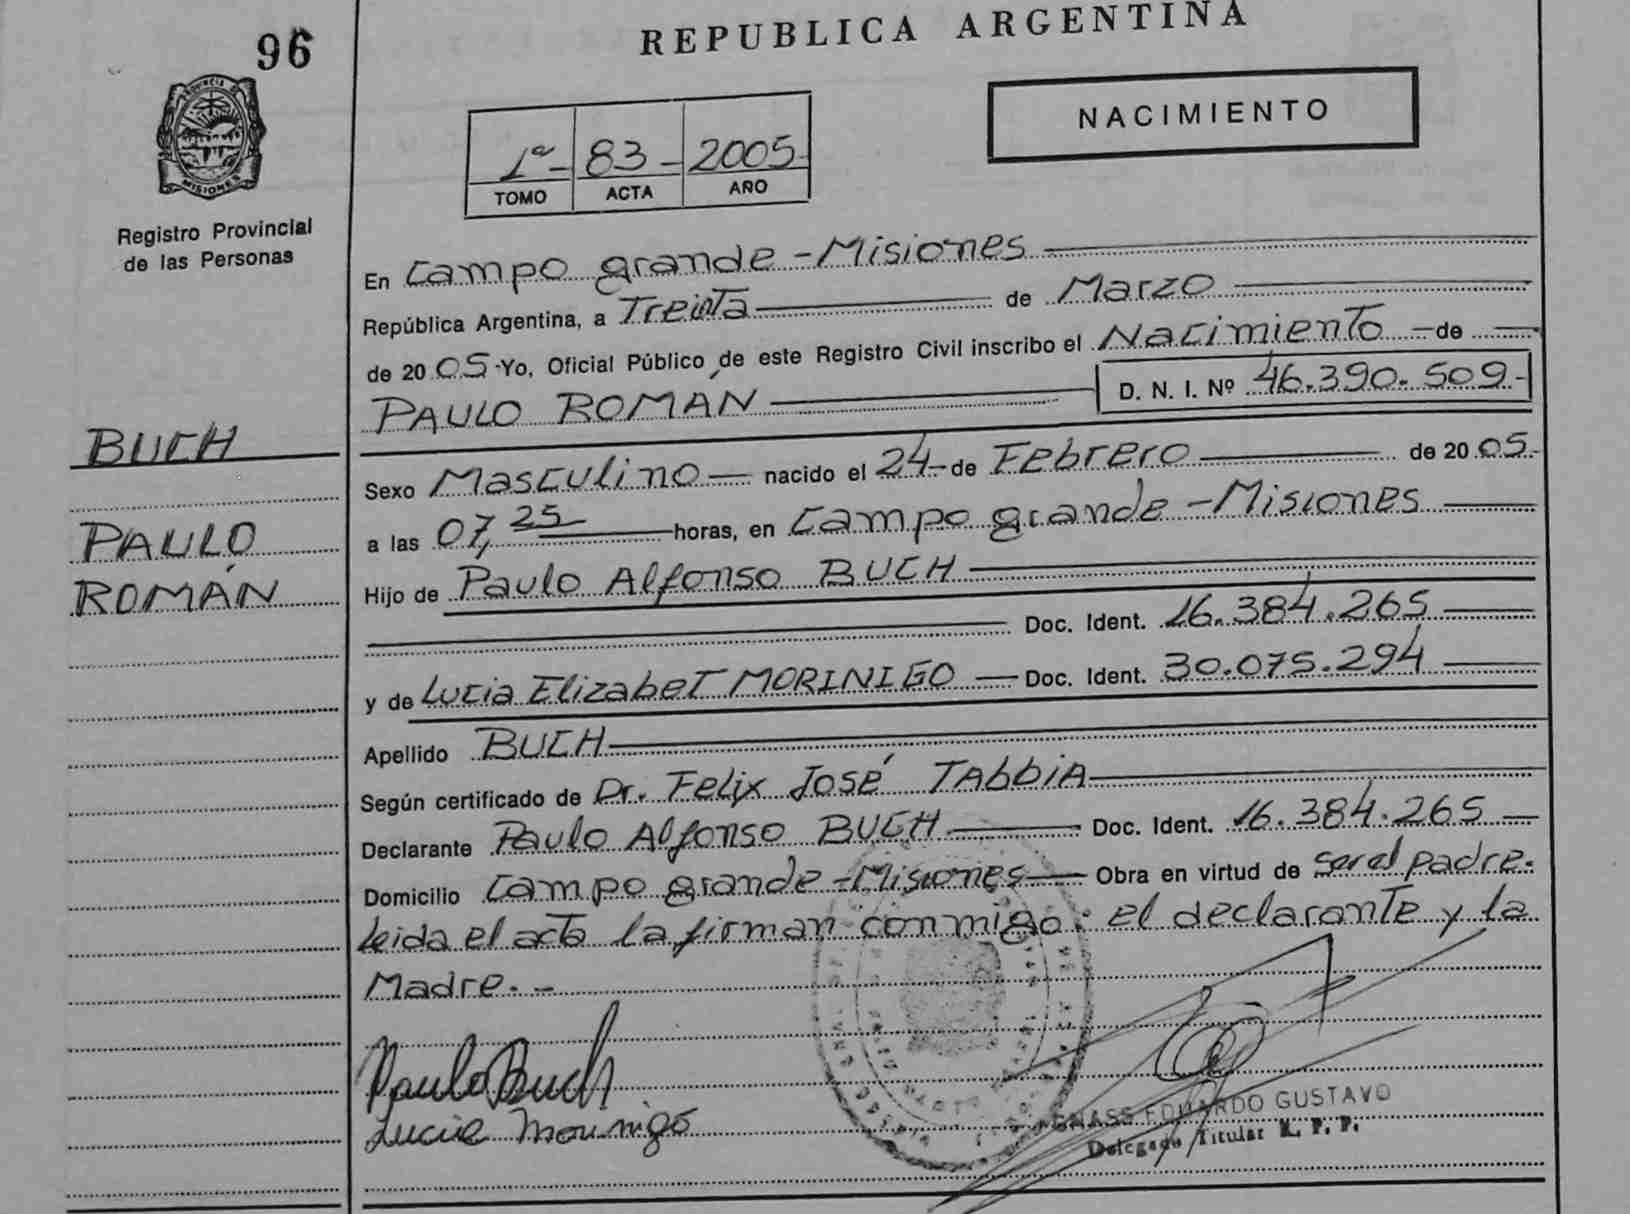 96
REPUBLICA ARGENTINA
NACIMIENTO
1º - 83 - 2005
TOMO ACTA AÑO
PROVINCIA DE
MISIONES
Registro Provincial
de las Personas
En Campo grande - Misiones
República Argentina, a Treinta de Marzo
de 2005 Yo, Oficial Público de este Registro Civil inscribo el Nacimiento - de
PAULO ROMÁN D. N. I. Nº 46.390.509-
BUCH
PAULO
ROMÁN
Sexo Masculino nacido el 24 de Febrero de 2005-
a las 07,25 horas, en Campo grande - Misiones
Hijo de Paulo Alfonso BUCH
Doc. Ident. 16.384.265
y de Lucia Elizabet MORINIGO Doc. Ident. 30.075.294
Apellido BUCH
Según certificado de Dr. Felix José TAbbiA
Declarante Paulo Alfonso BUCH Doc. Ident. 16.384.265
Domicilio Campo grande - Misiones Obra en virtud de ser el padre.
Leida el acta la firman conmigo: el declarante y la
Madre. -
Paulo Buch
Lucia Morinigo
EDUARDO GUSTAVO
Delegado Titular R. P. P.